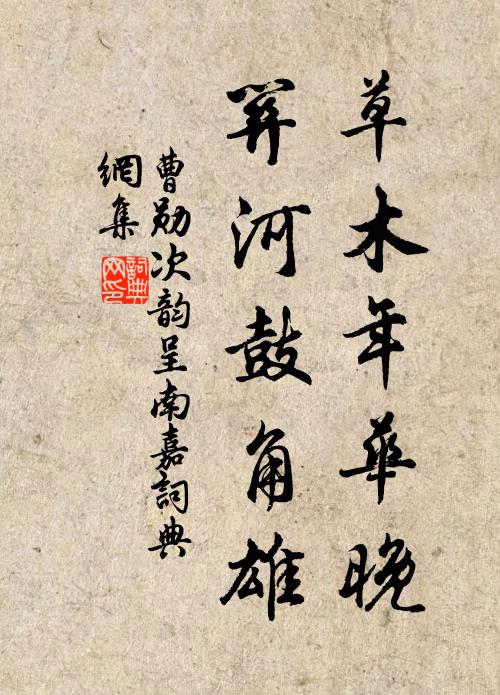 草木年華晚
關河鼓角雄
曹勛次韵呈南嘉詞典
網集
詞典
网印